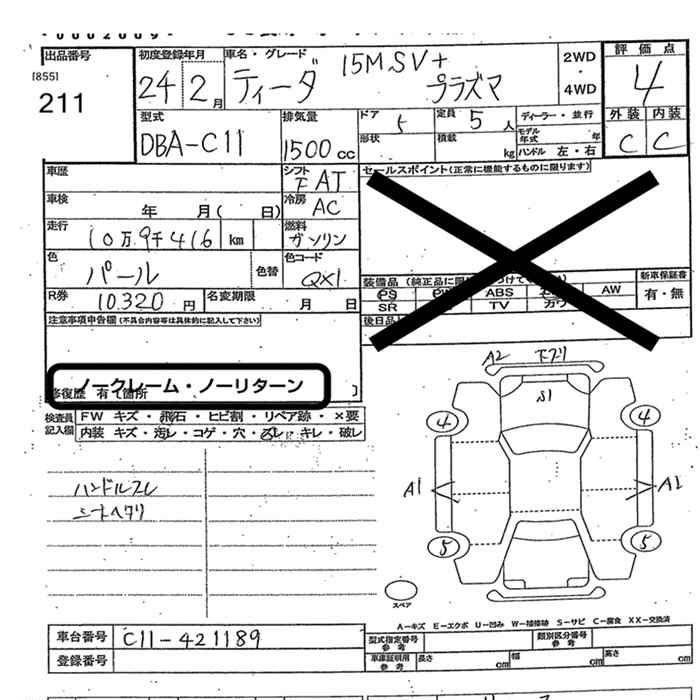 出品番号 初度登録年月 車名・グレード 2WD・4WD 評価点
[855] 211 24 2月 ティーダ 15MSV+プラズマ 4
型式 排気量 ドア 5 定員 5人 ディーラー・並行 外装 内装
DBA-C11 1500cc 形状 積載 kg モデル年式 年 ハンドル 左・右 C C
車歴 シフト FAT セールスポイント(正常に機能するものに限ります)
車検 年 月( 日) 冷房 AC
走行 10万9千416 km 燃料 ガソリン
色 パール 色替 色コード QX1
装備品 新車保証書
R券 10,320円 名変期限 月 日 PS ABS AW 有・無
SR TV
注意事項申告欄(不具合内容等は具体的に記入して下さい) 後日品
ノークレーム・ノーリターン
修復歴 有 箇所
検査員記入欄 FW キズ・飛石・ヒビ割・リペア跡・×要
内装 キズ・汚レ・コゲ・穴・スレ・キレ・破レ
A2 下ブリ
S1
4 4
ハンドルスレ
A1 A1
シートヘタリ
5 5
スペア
A-キズ E-エクボ U-凹み W-補修跡 S-サビ C-腐食 XX-交換済
車台番号 C11-421189 型式指定番号 参考 類別区分番号 参考
登録番号 車庫証明用 参考 長さ cm 幅 cm 高さ cm